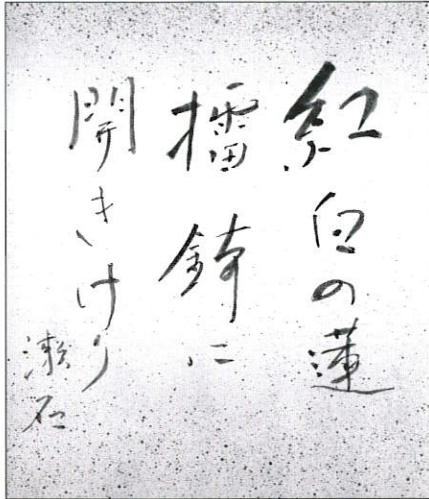 紅白の蓮
擂鉢に
開きけり
漱石